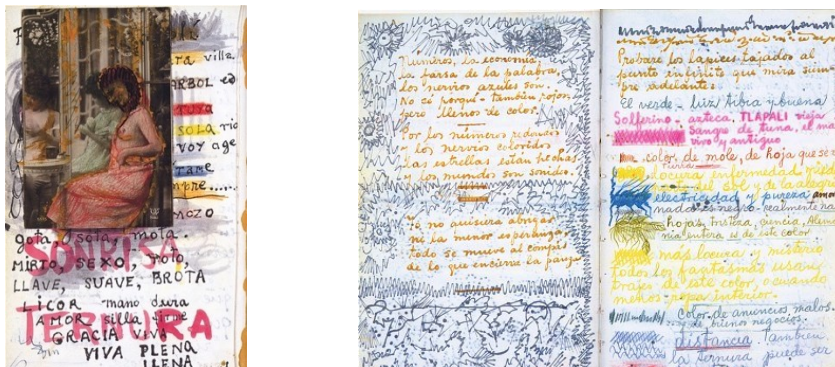 villa
ARBOL
TUYA
SOLA
VOY
MOZO
gota, sota, mota.
SONRISA
MIRTO, SEXO, roto,
LLAVE, SUAVE, BROTA
LICOR mano dura
AMOR silla firme
TERNURA
GRACIA VIVA
VIVA PLENA
LLENA
Números, la economía,
la farsa de la palabra,
los nervios azules son.
No sé porqué - también rojos,
pero llenos de color.
Por los números redondos
y los nervios coloridos
las estrellas están hechas
y los mundos son sonidos.
Yo no quisiera abrigar
ni la menor esperanza,
todo se mueve al compás
de lo que encierra la panza
Probaré los lápices tajados al
punto infinito que mira siem
pre adelante:
El verde - luz tibia y buena
Solferino - azteca. TLAPALI vieja
Sangre de tuna, el más
vivo y antiguo
color de mole, de hoja que se
tierra
locura enfermedad
del sol y de la alegría
electricidad y pureza amor
nada es negro - realmente na
hojas, tristeza, ciencia, Alema
nia entera es de este color
más locura y misterio
todos los fantasmas usan
trajes de este color, o cuando
menos ropa interior.
Color de anuncios malos
y de buenos negocios.
distancia. También
la ternura puede ser